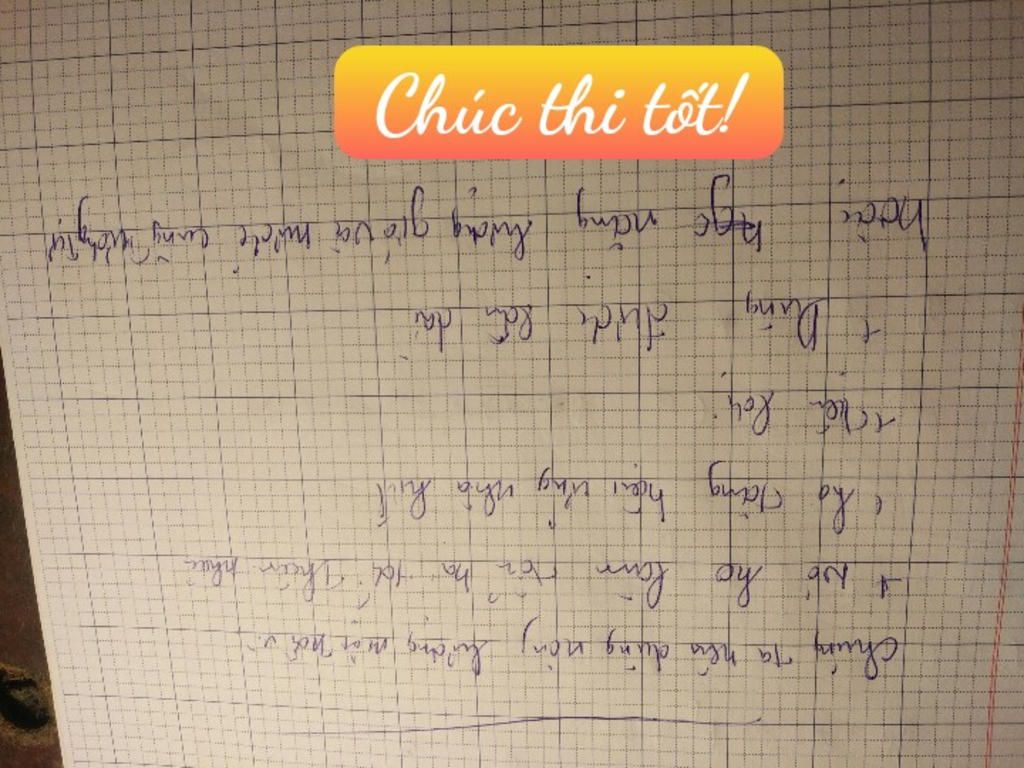 Chúc thi tốt!
Chúng ta nên dùng năng lượng mặt trời vì
+ Nó ko làm thiên nhiên
+ ko tăng hiệu ứng nhà kính
+ Tiện lợi
+ Dùng được lâu dài
Ngoài năng lượng gió và nước cũng tương tự